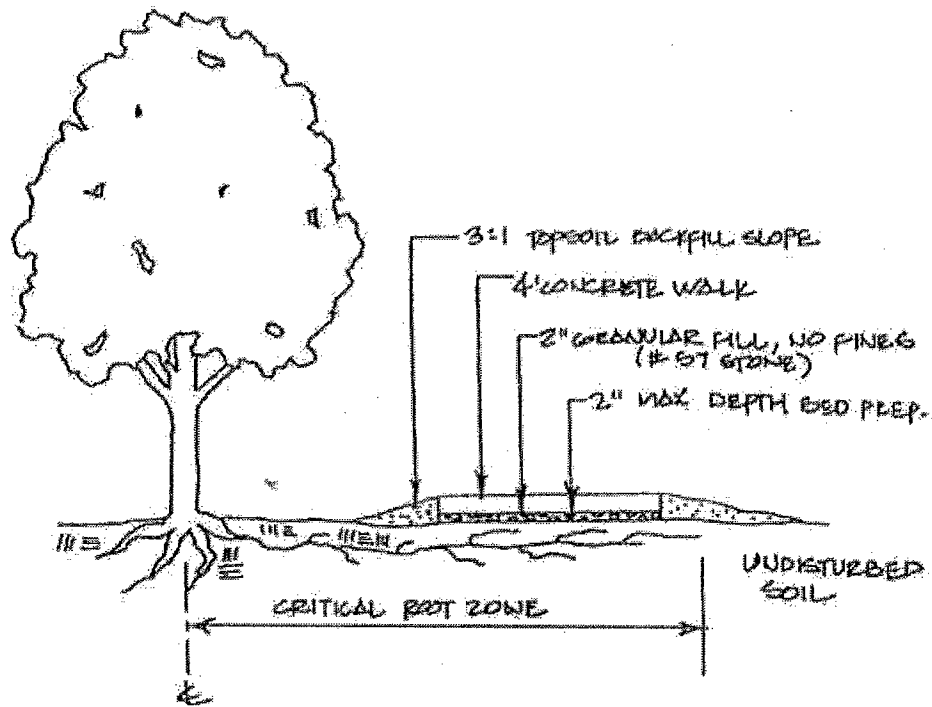 3:1 TOPSOIL BACKFILL SLOPE
4' CONCRETE WALK
2" GRANULAR FILL, NO FINES
(# 57 STONE)
2" MAX. DEPTH BED PREP.
UNDISTURBED
SOIL
CRITICAL ROOT ZONE
℄